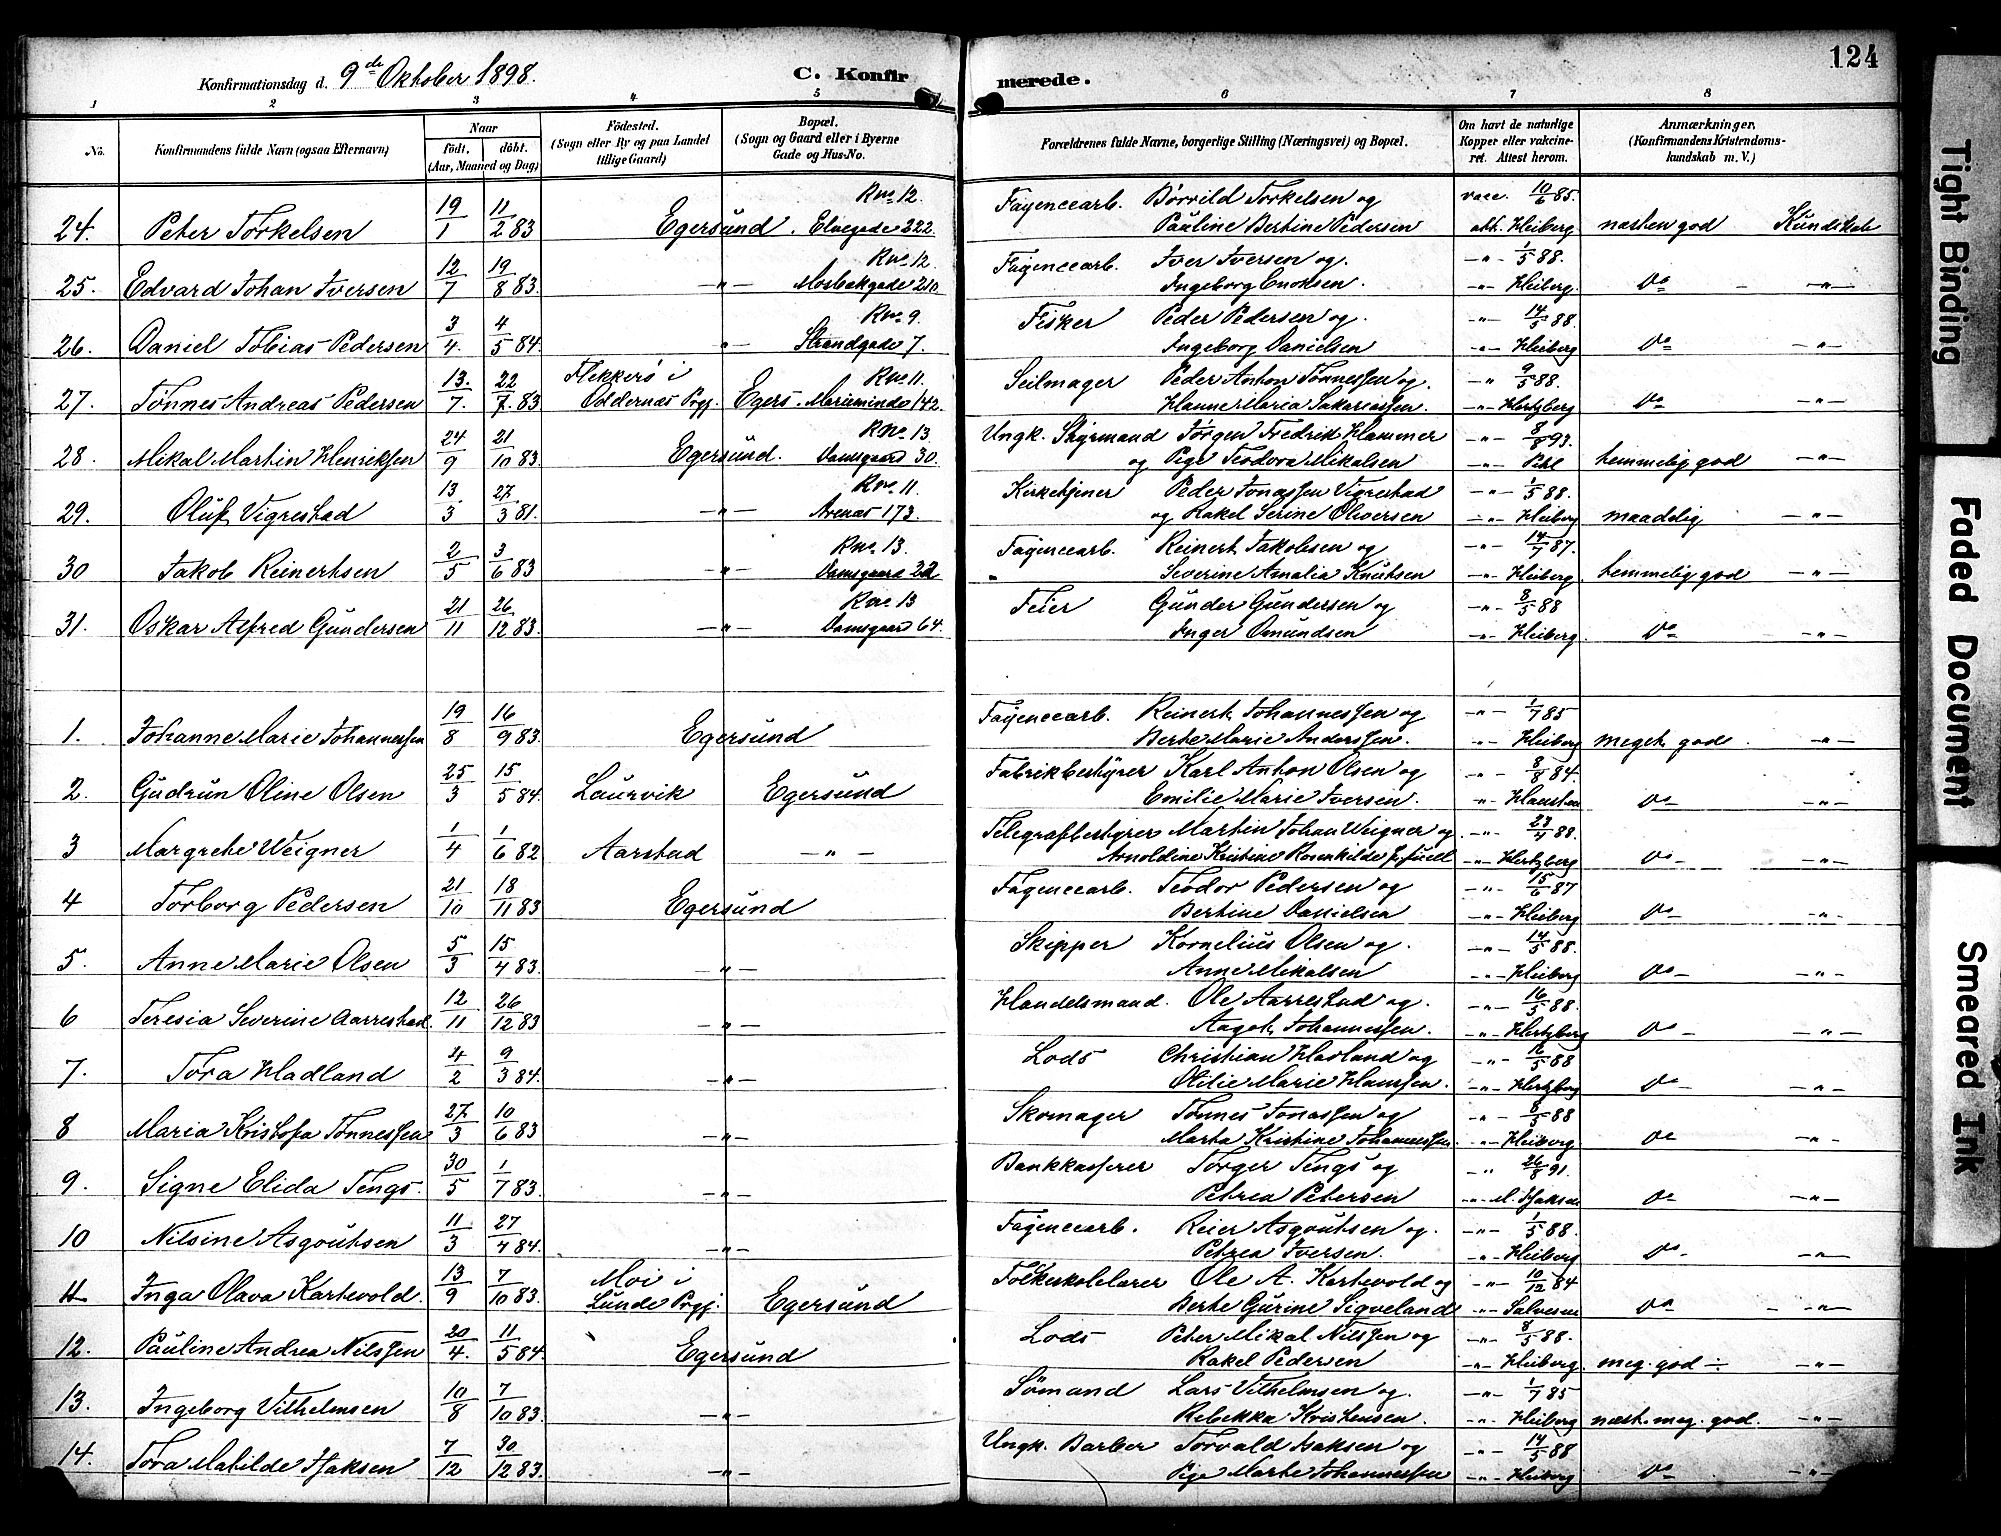 Konfirmationsdag d. 9de Oktober 1898. C. Konfirmerede. 124
1 2 3 4 5 6 7 8
No. Konfirmandens fulde Navn (ogsaa Efternavn) Naar födt, döbt. (Aar, Maaned og Dag) Födested. (Sogn eller By og paa Landet tillige Gaard) Bopæl. (Sogn og Gaard eller i Byerne Gade og Hus-No. Forældrenes fulde Navne, borgerlige Stilling (Næringsvei) og Bopæl. Om havt de naturlige Kopper eller vakcineret. Attest herom. Anmærkninger. (Konfirmandens Kristendomskundskab m. V.)
24. Peter Torkelsen 19/1 11/2 83 Egersund. Rno. 12. Elvegade 222. Fayencearb. Børvild Torkelsen og Pauline Bertine Pedersen vacc. 10/6 85. att. Heiberg næsten god Kundskab
25. Edvard Johan Iversen 12/7 19/8 83. -"- Rno. 12. Mosbækgade 210 Fayencearb. Iver Iversen og Ingeborg Enoksen. -"- 1/5 88. -"- Heiberg. Do -"-
26. Daniel Tobias Pedersen 3/4. 4/5 84. "- Rno. 9. Strandgade 7. Fisker Peder Pedersen og Ingeborg Danielsen -"- 14/5 88. -"- Heiberg Do -"-
27. Tönnes Andreas Pedersen 13./7. 22/7. 83 Flekkerö i Oddernæs Prgj. Egers. Rno. 11. Mariaminde 142. Seilmager Peder Anton Tönnessen og Hanne Maria Sakariassen. -"- 9/5 88. -"- Hertzberg Do -"-
28. Mikal Martin Henriksen 24/9 21/10 83. Egersund. Rno. 13. Damsgaard 30. Ungk. Styrmand Jörgen Fredrik Hammer og Pige Teodora Mikalsen -"- 8/8 93. -"- Pihl temmelig god -"-
29. Oluf Vigrestad 13/3 27/3 81. -"- Rno. 11. Arenæs 173. Kirketjener Peder Jonassen Vigrestad og Rakel Serine Oliversen -"- 1/5 88. -"- Heiberg maadelig -"-
30 Jakob Reinertsen 2/5 3/6 83 -"- Rno. 13. Damsgaard 22 Fayencearb. Reinert Jakobsen og Severine Amalia Knutsen -"- 14/7 87. -"- Heiberg. temmelig god -"-
31. Oskar Alfred Gundersen 21/11 26/12 83. -"- Rno. 13 Damsgaard 64. Feier Gunder Gundersen og Inger Omundsen -"- 8/5 88 -"- Heiberg. Do -"-
1. Johanne Marie Johannessen 19/8 16/9 83. Egersund Fayencearb. Reinert Johannessen og Berte Marie Anderssen. -"- 1/7 85 -"- Heiberg meget god. -"-
2. Gudrun Oline Olsen 25/3 15/5 84. Laurvik Egersund Fabrikbestyrer Karl Anton Olsen og Emilie Marie Iversen. -"- 8/8 84. -"- Do -"-
3 Margrete Weigner 1/4 1/6 82 Aarstad -"- Telegrafbestyrer Martin Johan Weigner og Arnoldine Kristine Rosenkilde f. Juell -"- 23/4 88. -"- Hertzberg Do -"-
4 Torborg Pedersen 21/10 18/11 83 Egersund Fayencearb. Teodor Pedersen og Bertine Danielsen -"- 15/6 87 -"- Heiberg Do -"-
5. Anne Marie Olsen 5/3 15/4 83. -"- Skipper Kornelius Olsen og Anne Mikalsen -"- 14/5 88. -"- Heiberg Do -"-
6 Teresia Severine Aarrestad. 12/11 26/12 83 -"- Handelsmand. Ole Aarrestad og Aagot Johannessen. -"- 16/5 88. -"- Hertzberg Do -"-
7. Tora Hadland 4/2 9/3 84. -"- Lods Christian Hadland og Otilie Marie Hanssen. -"- 16/5 88 -"- Hertzberg Do -"-
8 Maria Kristofa Tönnessen 27/3 10/6 83 -"- Skomager Tönnes Jonassen og Marta Kristine Johannessen. -"- 8/5 88 -"- Heiberg. Do -"-
9. Signe Elida Tengs. 30/5 1/7 83. -"- Bankkasserer Torger Tengs og Petrea Petersen -"- 26/8 91. -"- M. Isaksen Do -"-
10 Nilsine Asgoutsen 11/3 27/4 84. -"- Fayencearb. Reier Asgoutsen og Petrea Iversen. -"- 1/5 88. -"- Heiberg Do -"-
11 Inga Olava Kartevold. 13/9 7/10 83. Moi i Lunde Prgj. Egersund Folkeskolelærer Ole A. Kartevold og Berte Gurine Sigveland -"- 10/12 84 -"- Salvesen Do -"-
12. Pauline Andrea Nilssen 20/4. 11/5 84. Egersund Lods Peter Mikal Nilssen og Rakel Pedersen -"- 8/5 88. -"- Heiberg. meg. god ÷ -"-
13. Ingeborg Vilhelmsen 10/8 7/10 83. -"- Sömand Lars Vilhelmsen og Rebekka Kristensen. -"- 1/7 85 -"- Heiberg næst. meg. god. -"-
14. Tora Matilde Isaksen 7/12 30/12 83. -"- Ungk. Barber Torvald Isaksen og Pige Marte Johannessen -"- 14/5 88 -"- Heiberg Do -"-
Tight Binding
Faded Document
Smeared Ink